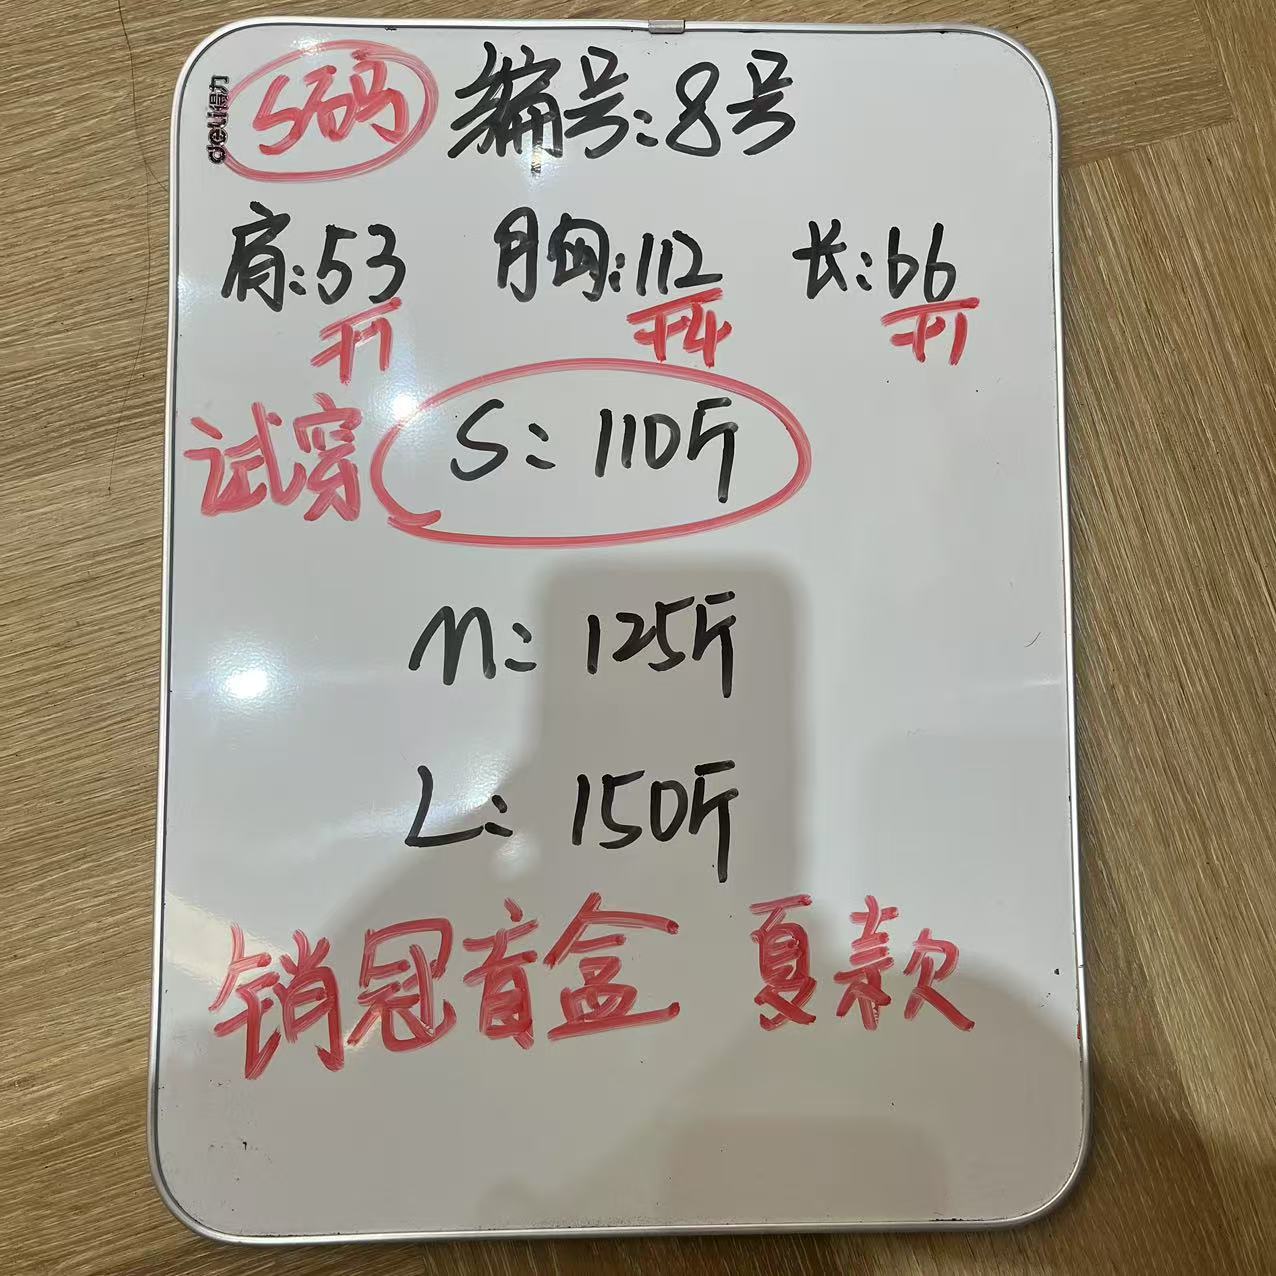 deli得力
S码 编号:8号
肩:53 胸:112 长:66
+1 +4 +1
试穿 S: 110斤
M: 125斤
L: 150斤
销冠盲盒 夏款